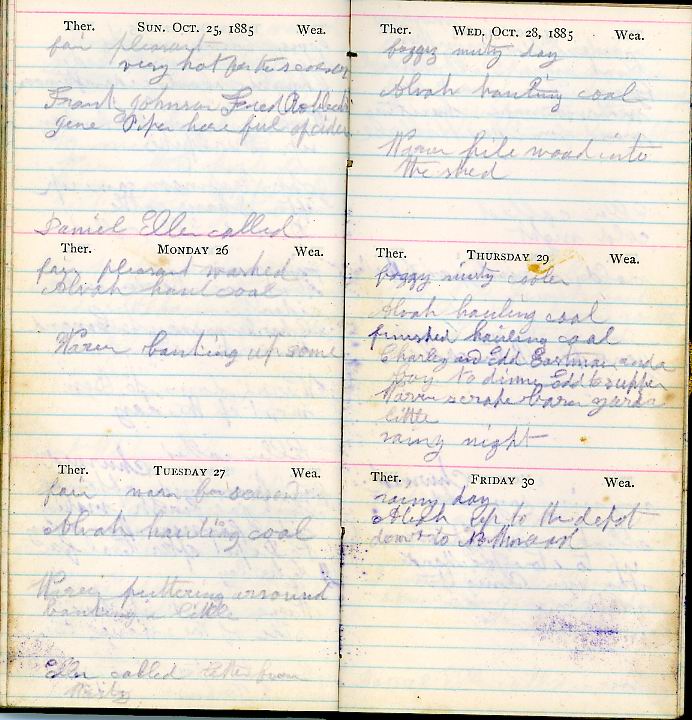 Ther. SUN. OCT. 25, 1885 Wea.
fair pleasant
very hot for the season
Frank Johnson Fred
gene Piper here full of cider
Daniel Ellen called
Ther. MONDAY 26 Wea.
fair pleasant washed
Alvah haul coal
Waren banking up some
Ther. TUESDAY 27 Wea.
fair warm for season
Alvah hauling coal
Waren puttering arround
banking a little
Ellen called letter from
Ther. WED. OCT. 28, 1885 Wea.
foggy misty day
Alvah hauling coal
Waren pile wood into
the shed
Ther. THURSDAY 29 Wea.
foggy misty cooler
Alvah hauling coal
finished hauling coal
Charley and Edd Eastman and a
boy to dinner Edd to supper
Waren scrape barn yard
little
rainy night
Ther. FRIDAY 30 Wea.
rainy day
Alvah up to the depot
down to